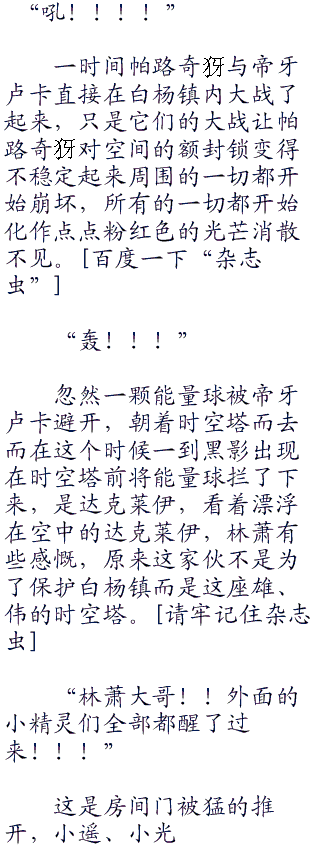 “吼！！！！”
一时间帕路奇犽与帝牙
卢卡直接在白杨镇内大战了
起来，只是它们的大战让帕
路奇犽对空间的额封锁变得
不稳定起来周围的一切都开
始崩坏，所有的一切都开始
化作点点粉红色的光芒消散
不见。[百度一下“杂志
虫”]
“轰！！！”
忽然一颗能量球被帝牙
卢卡避开，朝着时空塔而去
而在这个时候一到黑影出现
在时空塔前将能量球拦了下
来，是达克莱伊，看着漂浮
在空中的达克莱伊，林萧有
些感慨，原来这家伙不是为
了保护白杨镇而是这座雄、
伟的时空塔。[请牢记住杂志
虫]
“林萧大哥！！外面的
小精灵们全部都醒了过
来！！！”
这是房间门被猛的推
开，小遥、小光